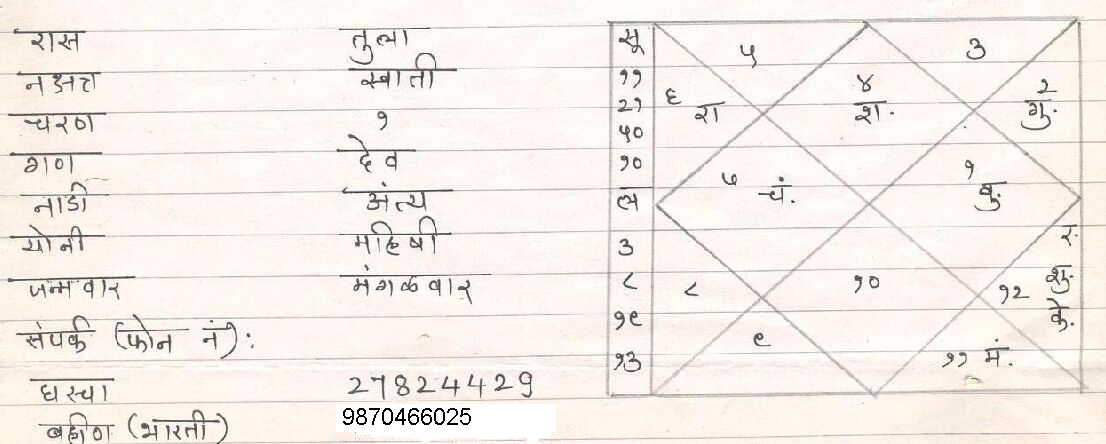 रास तुला
नक्षत्र स्वाती
चरण १
गण देव
नाडी अंत्य
योनी महिषी
जन्मवार मंगळवार
संपर्क (फोन नं):
घरचा 27824429
बहीण (भारती) 9870466025
सू
११
२१
५०
१०
ल
३
८
१९
१३
५
३
६ रा
४ श.
२ गु.
७ चं.
१ बु.
८
१०
१२ र. शु. के.
९
११ मं.